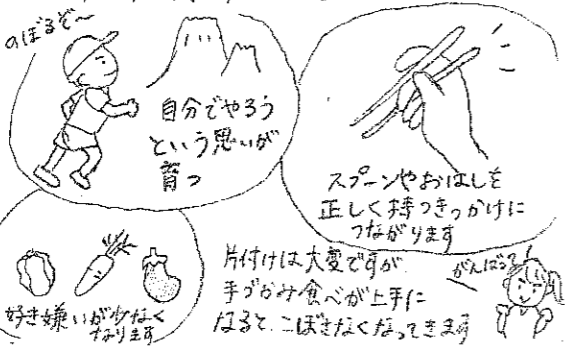 のぼるぞ〜
自分でやろう
という思いが
育つ
スプーンやおはしを
正しく持つきっかけに
つながります
好き嫌いが少なく
なります
片付けは大変ですが
手づかみ食べが上手に
なると、こぼさなくなってきます
がんばって